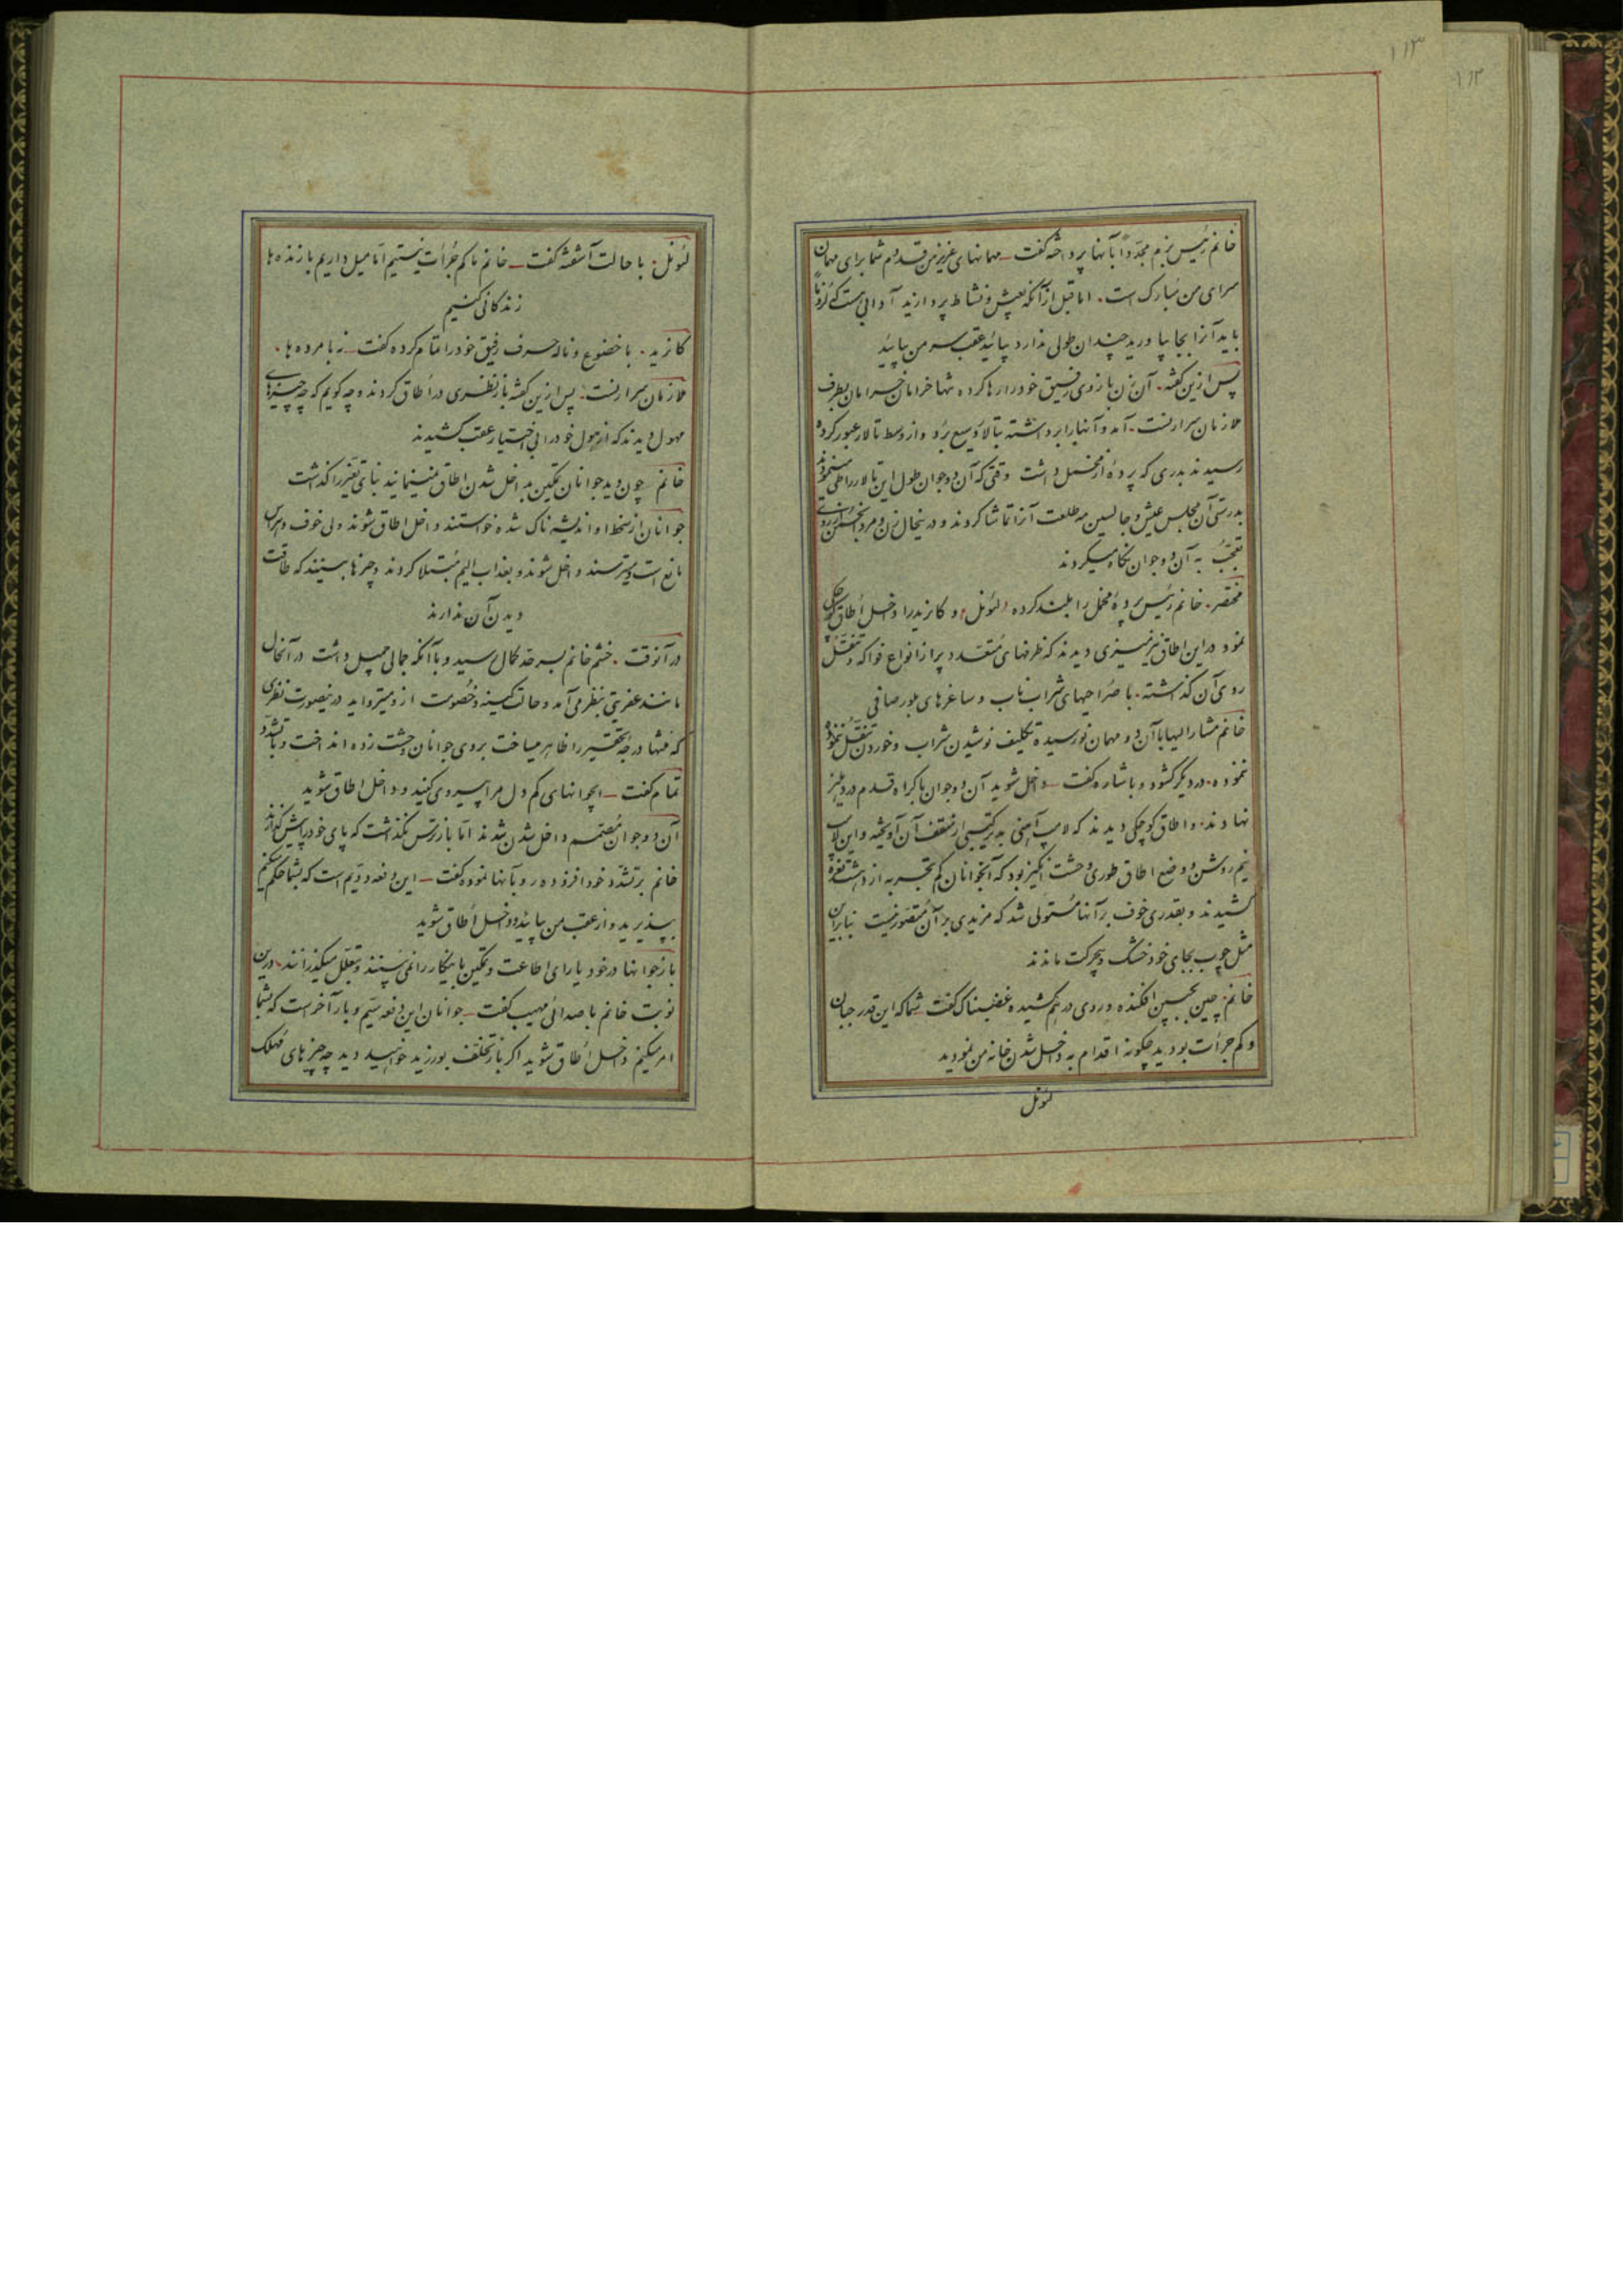 ۱۱۳
۱۱۳
خانم رئیس بزم مجدداً بآنها پرداخته گفت ــ مهمانهای عزیز من قدوم شما برای مهمان
سرای من مبارک است. اما قبل از آنکه بعیش و نشاط پردازید آدابی هست که لزوماً
باید آنرا بجا بیاورید چندان طولی ندارد بیائید عقب سر من بیائید
پس ازین گفته. آن زن بازوی رفیق خود را رها کرده تنها خرامان خرامان بطرف
ملازمان سرارنست. آمد و آنها را برداشته بتالار وسیع برد و از وسط تالار عبور کرده
رسیدند بدری که پردۀ از مخمل داشت وقتی که آن دو جوان طول این تالار را طی مینمودند
بدرستی آن مجلس عیش و جالسین مه طلعت آنرا تماشا کردند و درینحال زن و مرد انجمن از روی
تعجب به آن دو جوان نگاه میکردند
مختصر. خانم رئیس پردۀ مخمل را بلند کرده لئونل و کانزید را داخل اطاق کوچکی
نمود در این اطاق نیز میزی دیدند که ظرفهای متعدد پر از انواع فواکه و تنقل
روی آن گذاشته. با صراحیهای شراب ناب و ساغرهای بلور صافی
خانم مشارالیها با آن دو مهمان نورسیده تکلیف نوشیدن شراب و خوردن تنقل ننموده
نموده. در دیگر گشود و باشاره گفت ــ داخل شوید آن دو جوان باکراه قدم در دهلیز
نهادند. و اطاق کوچکی دیدند که لامپ آهنی به ترکیبی از سقف آن آویخته و این لامپ
نیم روشن و وضع اطاق طوری وحشت انگیز بود که آنجوانان کم تجربه از دهشت نعره
کشیدند و بقدری خوف برآنها مستولی شد که مزیدی بر آن متصور نیست بنابراین
مثل چوب بجای خود خشک و بیحرکت ماندند
خانم. چین بجبین افکنده و روی درهم کشیده غضبناک گفت ــ شما که این قدر جبان
و کم جرأت بودید چگونه اقدام به داخل شدن خانه من نمودید
لئونل
لئونل. با حالت آشفته گفت ــ خانم ما کم جرأت نیستیم اما میل داریم با زنده ها
زندگانی کنیم
کانزید. با خضوع و ناله حرف رفیق خود را تمام کرده گفت ــ نه با مرده ها.
ملازمان سرارنست. پس ازین گفته باز نظری در اطاق کردند و چه گویم که چه چیزهای
مهول دیدند که از هول خود را بی اختیار عقب کشیدند
خانم چون دید جوانان تمکین بداخل شدن اطاق نمینمایند بنای تغیر را گذاشت
جوانان از سخط او اندیشه ناک شده خواستند داخل اطاق شوند ولی خوف و هراس
مانع است و میترسند داخل شوند و بعذاب الیم مبتلا گردند و چیزها ببینند که طاقت
دیدن آن ندارند
در آنوقت. خشم خانم بسر حد کمال رسید و با آنکه جمالی جمیل داشت در آنحال
مانند عفریتی بنظر می آمد و حالت کینه و خصومت از او میتراوید درینصورت نظری
که منتها درجه تحقیر را ظاهر میساخت بروی جوانان وحشت زده انداخت و با تشدد
تمام گفت ــ ایجوانهای کم دل مرا پیروی کنید و داخل اطاق شوید
آن دو جوان مصمم داخل شدن شدند اما باز ترس نگذاشت که پای خود را پیش گذارند
خانم بر تشدد خود افزوده رو بآنها نموده گفت ــ این دفعه دویم است که بشما حکم میکنم
بپذیرید و از عقب من بیائید و داخل اطاق شوید
باز جوانها در خود یارای اطاعت و تمکین باینکار را نمی بینند و بتعلل میگذرانند. درین
نوبت خانم با صدائی مهیب گفت ــ جوانان این دفعه سیم و بار آخر است که بشما
امر میکنم داخل اطاق شوید اگر باز تخلف بورزید خواهید دید چه چیزهای مهلک